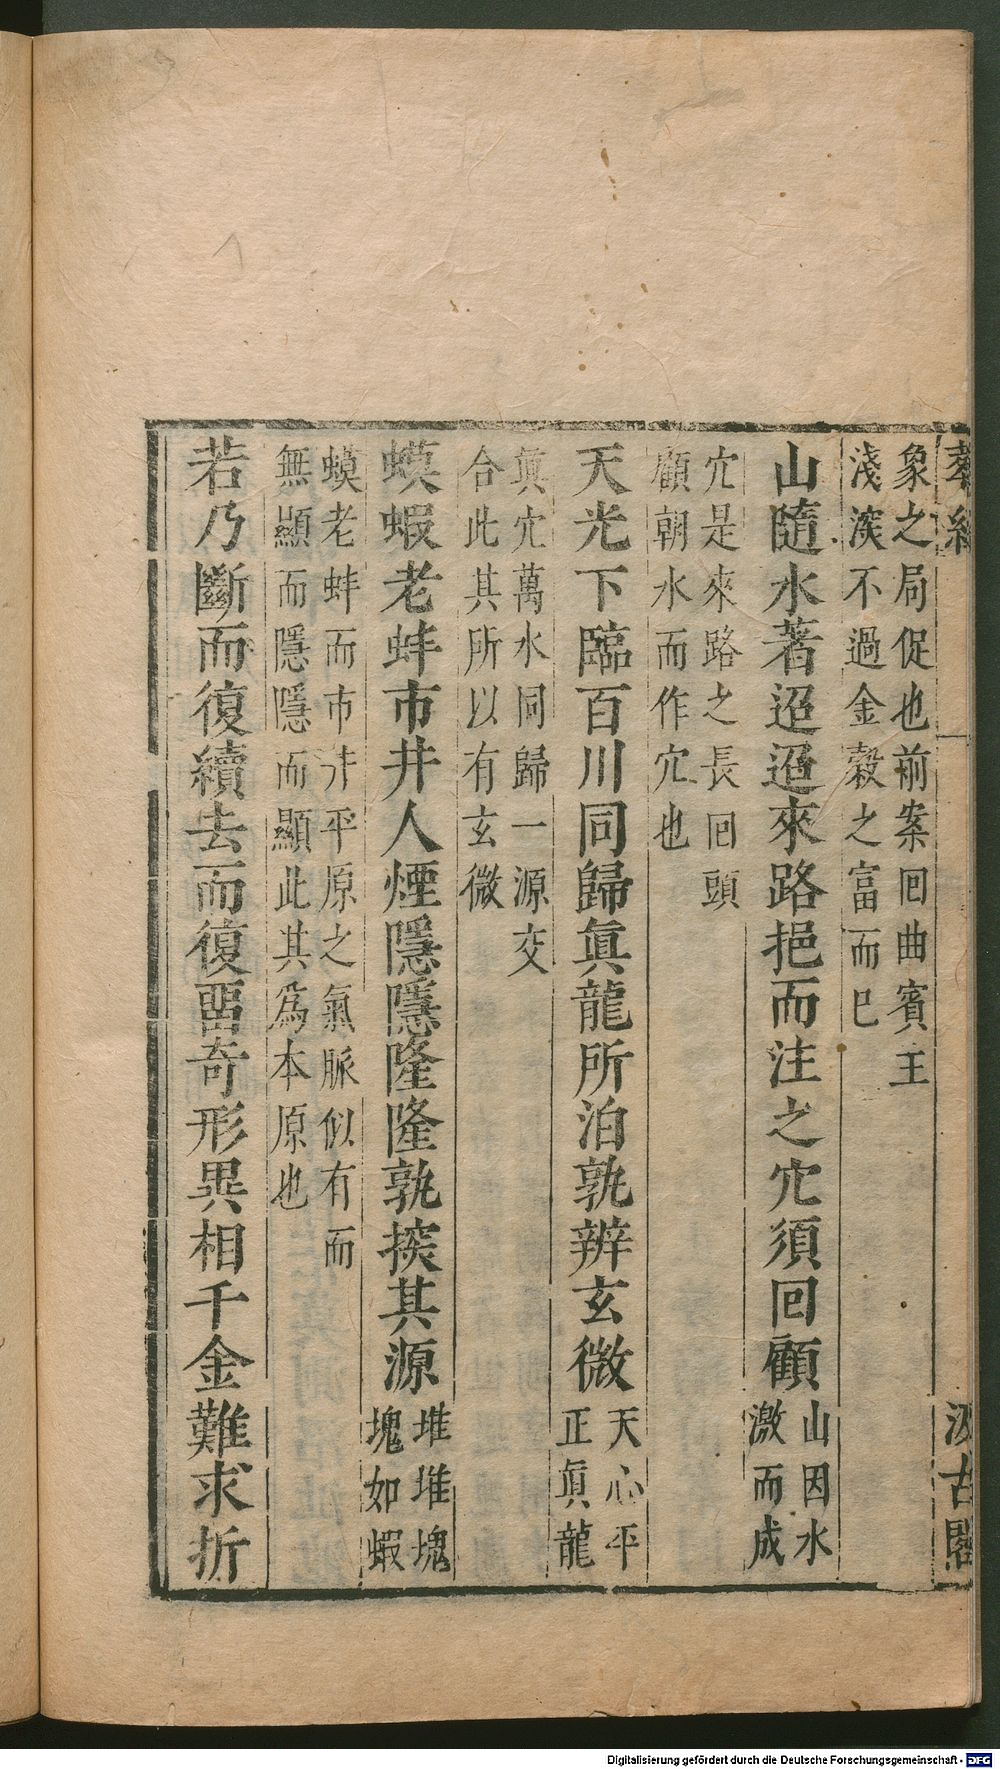 葬經
汲古閣
象之局促也前案囘曲賓主
淺溁不過金穀之富而巳
山隨水著迢迢來路挹而注之穴須回顧
山因水
激而成
穴是來路之長囘頭
顧朝水而作穴也
天光下臨百川同歸眞龍所泊孰辨玄微
天心平
正眞龍
眞穴萬水同歸一源交
合此其所以有玄微
蟆蝦老蚌市井人煙隱隱隆隆孰探其源
堆堆塊
塊如蝦
蟆老蚌而市井平原之氣脈似有而
無顯而隱隱而顯此其爲本原也
若乃斷而復續去而復畱奇形異相千金難求折
Digitalisierung gefördert durch die Deutsche Forschungsgemeinschaft - DFG